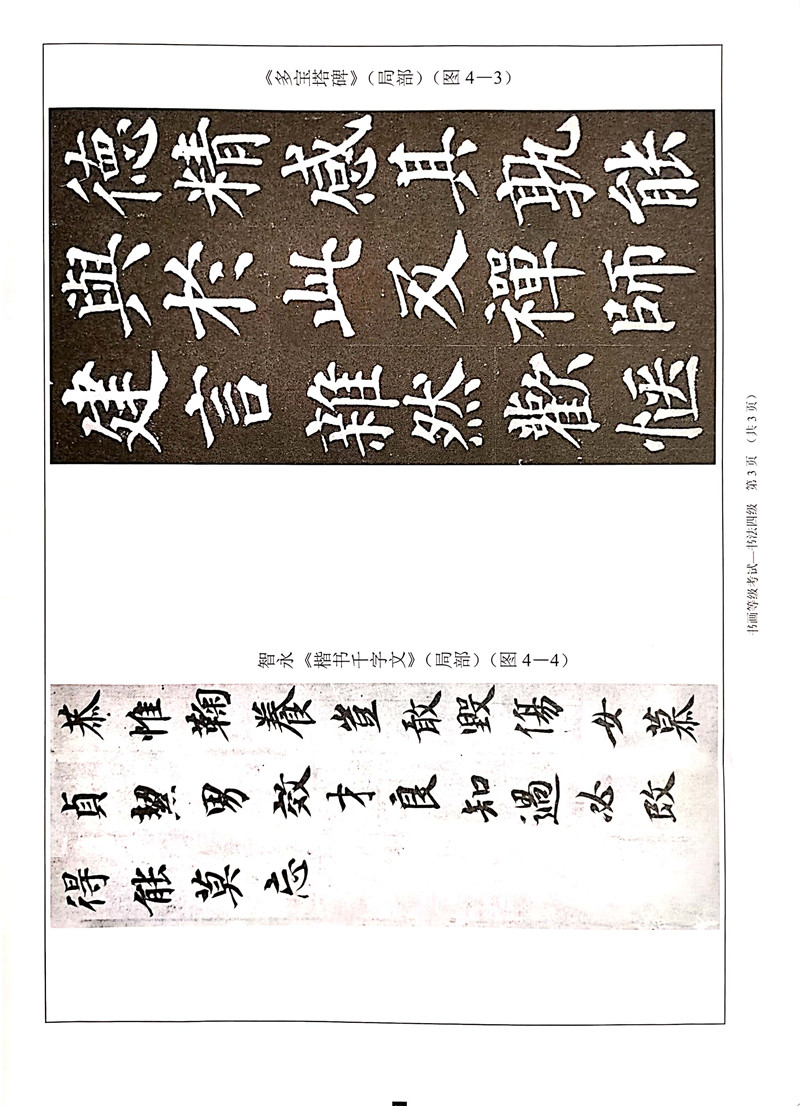 《多宝塔碑》（局部）（图 4—3）
德精感其孰能
與於此及禪師
建言雜然歡愜
智永《楷书千字文》（局部）（图 4—4）
恭惟鞠養豈敢毀傷女慕
貞絜男效才良知過必改
得能莫忘
书画等级考试—书法四级 第 3 页 （共 3 页）